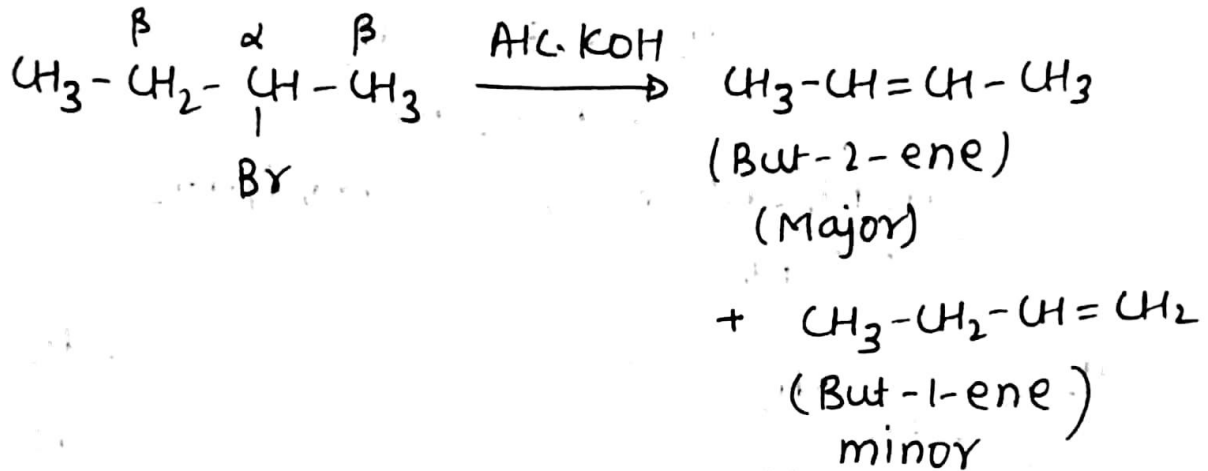 β α β
CH3 - CH2 - CH - CH3 Alc. KOH CH3-CH=CH-CH3
Br
(But-2-ene)
(Major)
+ CH3-CH2-CH=CH2
(But-1-ene)
minor